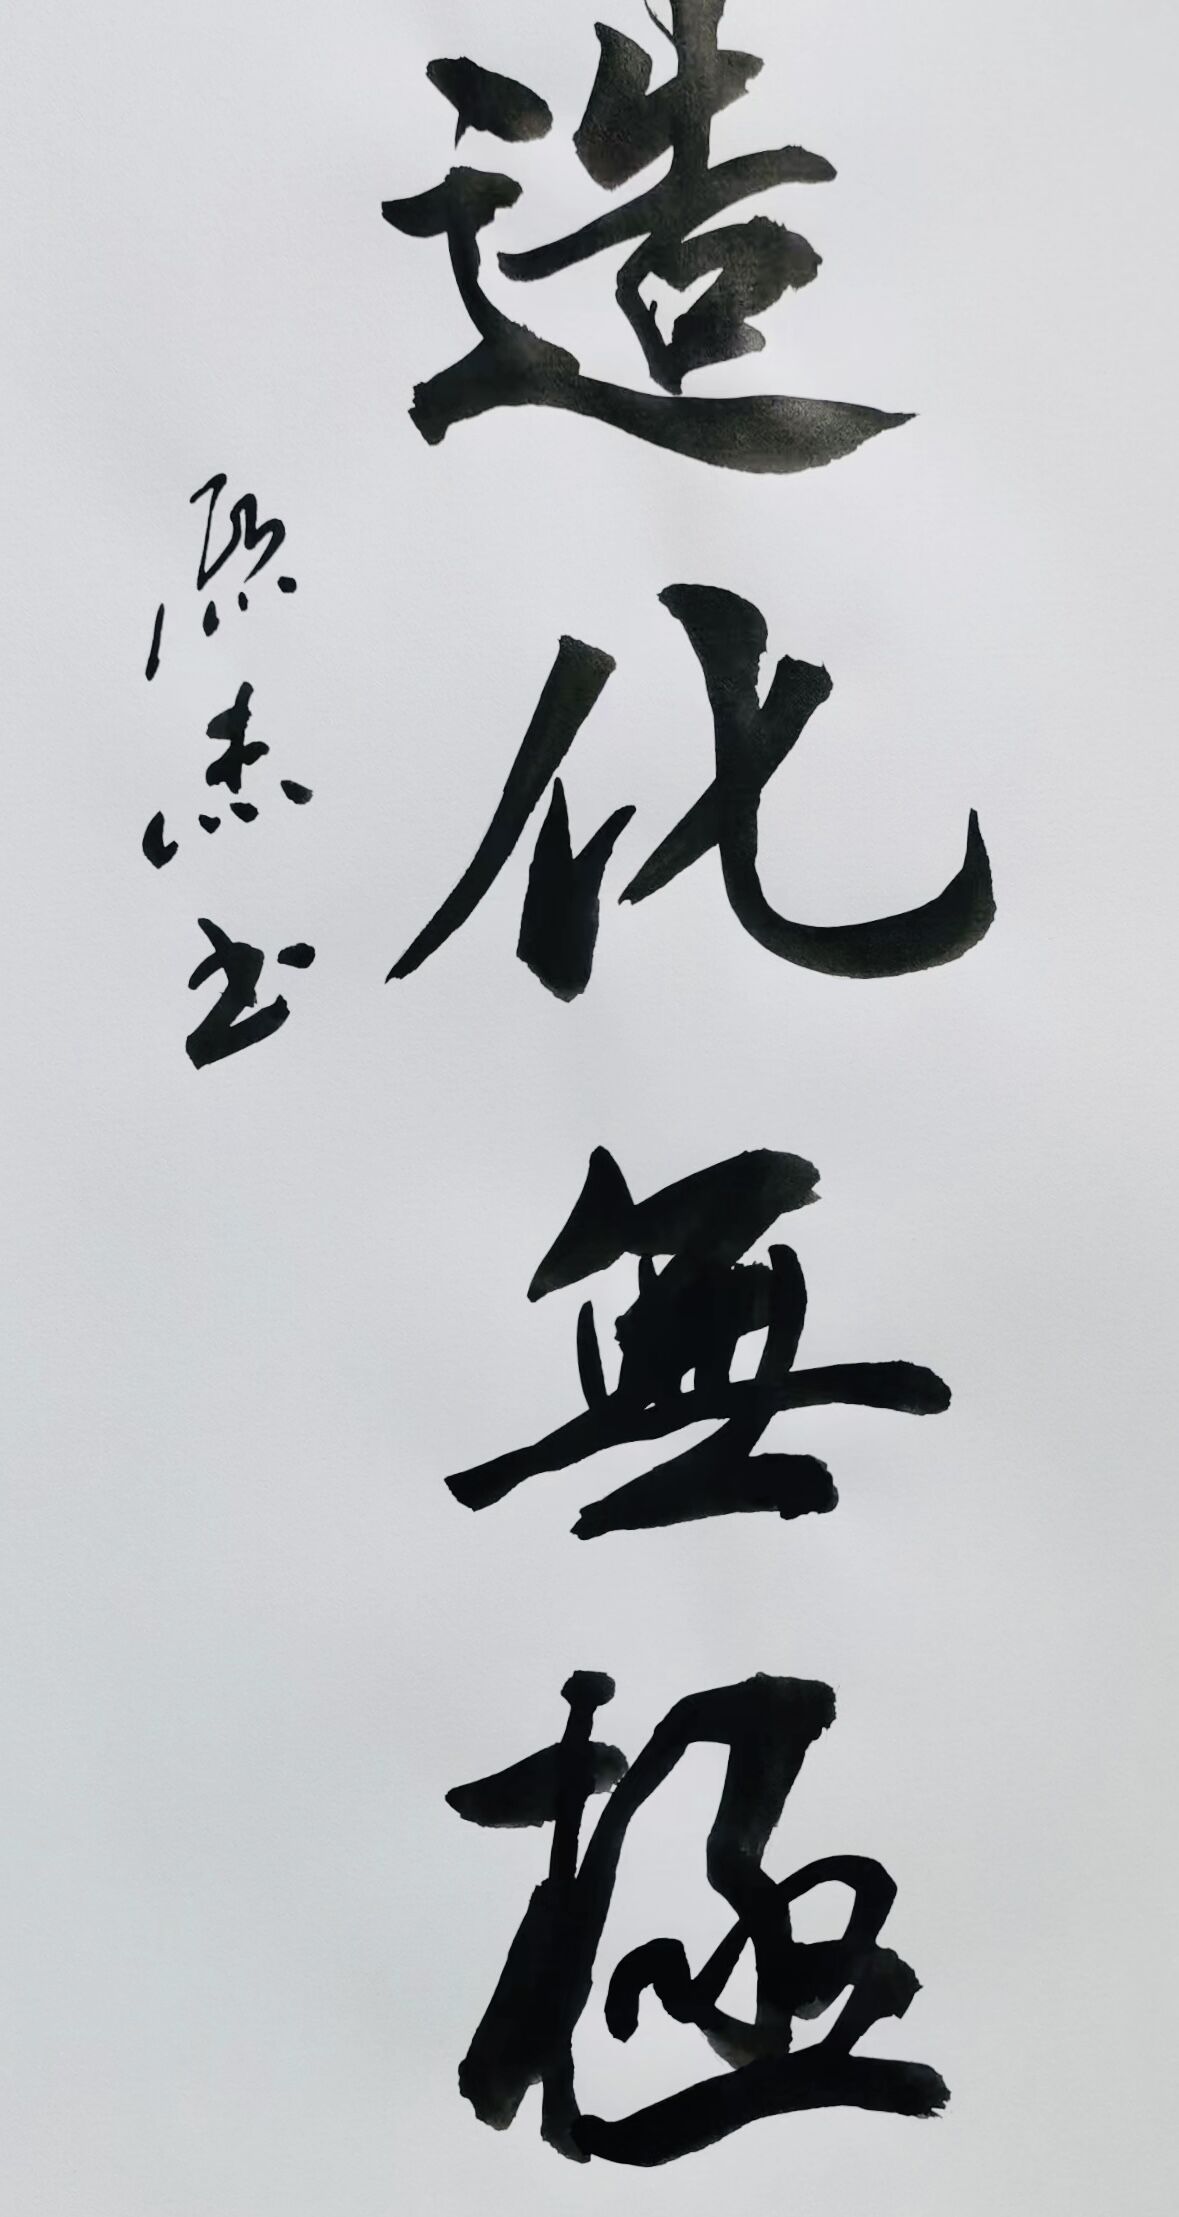 造化無極
杰书